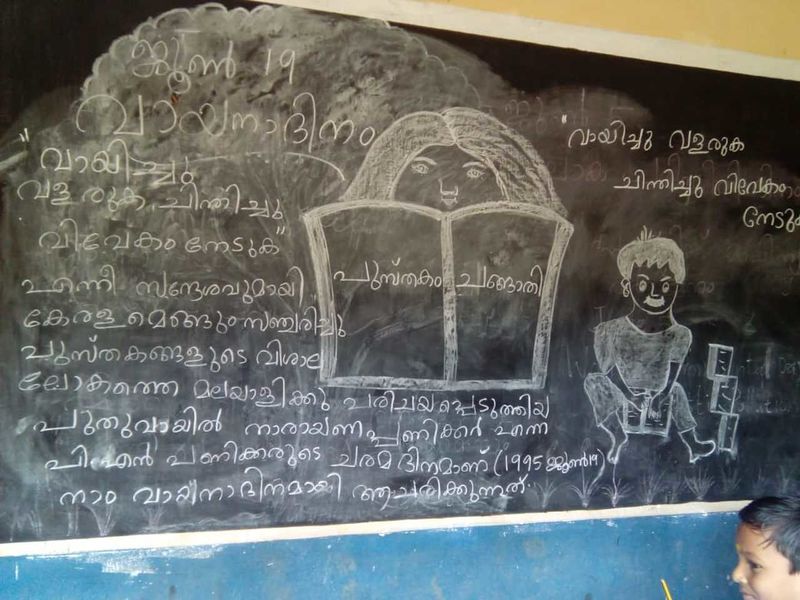 ജൂൺ 19
വായനാദിനം
"വായിച്ചു
വളരുക, ചിന്തിച്ചു
വിവേകം നേടുക"
എന്നീ സന്ദേശവുമായി
കേരളമെങ്ങും സഞ്ചരിച്ചു
പുസ്തകങ്ങളുടെ വിശാല
ലോകത്തെ മലയാളിക്കു പരിചയപ്പെടുത്തിയ
പുതുവായിൽ നാരായണപ്പണിക്കർ എന്ന
പി എൻ പണിക്കരുടെ ചരമദിനമാണ് (1995 ജൂൺ 19)
നാം വായനാദിനമായി ആചരിക്കുന്നത്.
പുസ്തകം ചങ്ങാതി
"വായിച്ചു വളരുക
ചിന്തിച്ചു വിവേകം
നേടുക